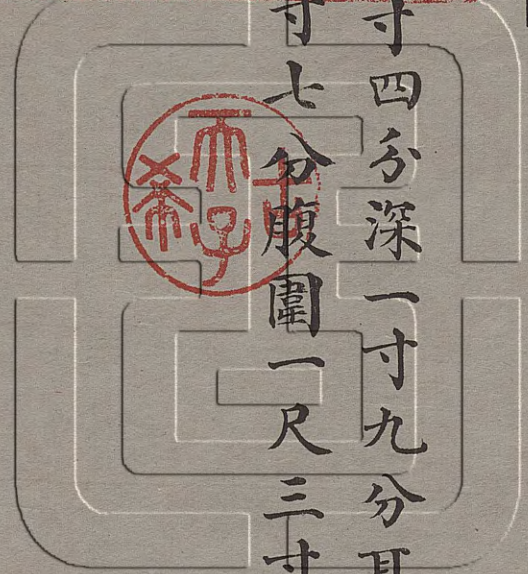 寸四分深一寸九分耳
寸七分腹圍一尺三寸
古希天子